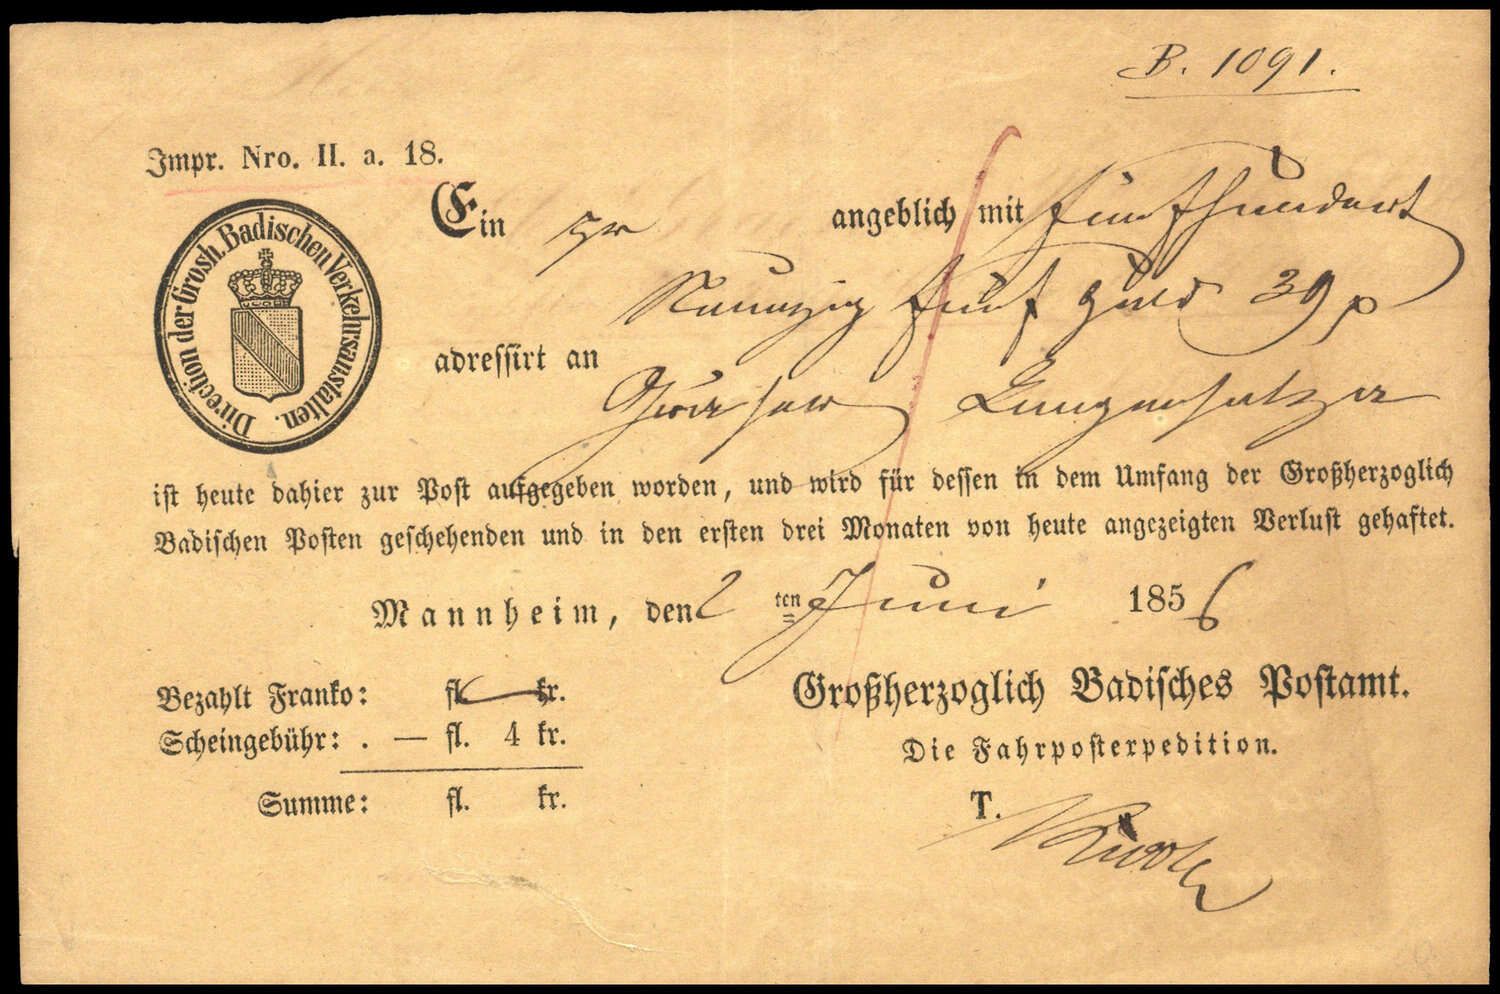 B. 1091.
Impr. Nro. II. a. 18.
Direction der Grosh. Badischen Verkehrsanstalten.
Ein angeblich mit fünfhundert
Neunzig fünf Guld 39
adressirt an
ist heute dahier zur Post aufgegeben worden, und wird für dessen in dem Umfang der Großherzoglich
Badischen Posten geschehenden und in den ersten drei Monaten von heute angezeigten Verlust gehaftet.
Mannheim, den 2 ten Juni 1856
Bezahlt Franko: fl. kr.
Scheingebühr: . — fl. 4 kr.
Summe: fl. kr.
Großherzoglich Badisches Postamt.
Die Fahrposterpedition.
T.